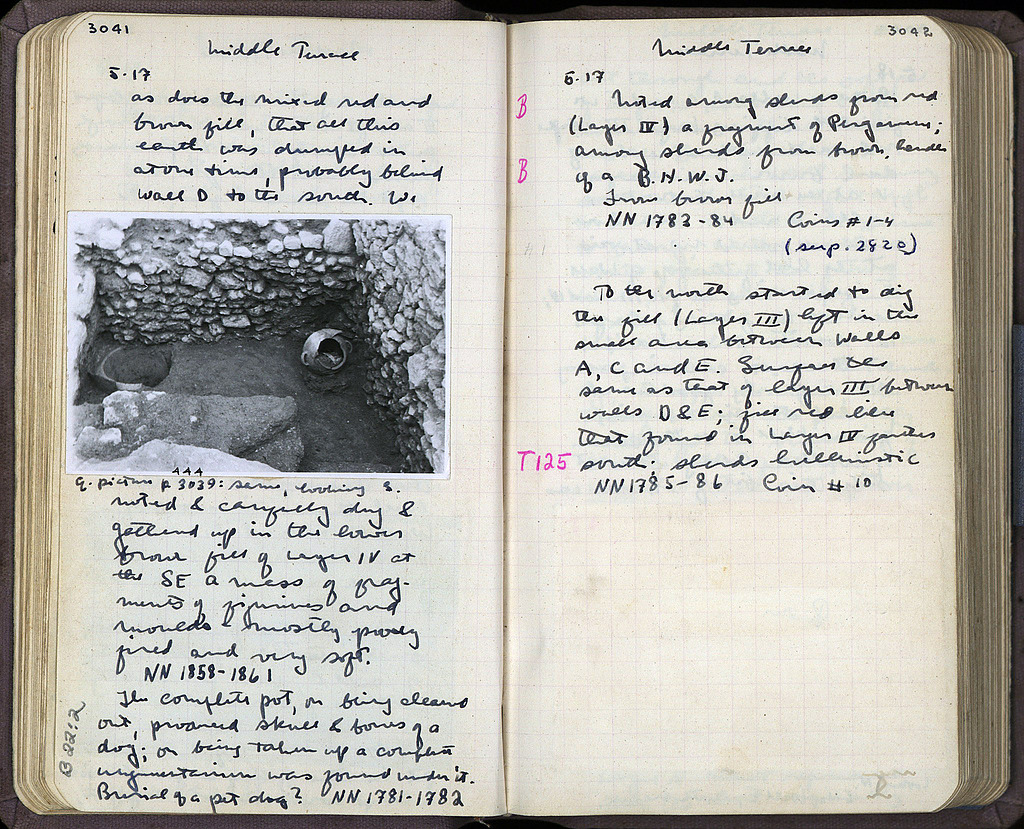 3041
Middle Terrace
5.17
as does the mixed red and
brown fill, that all this
earth was dumped in
at one time, probably behind
wall D to the south. We
AAA
Cf. picture p 3039: same, looking S.
noted & carefully dug &
gathered up in the lower
brown fill of Layer IV at
the SE a mess of frag-
ments of figurines and
moulds - mostly poorly
fired and very soft.
NN 1858-1861
The complete pot, on being cleaned
out, produced skull & bones of a
dog; on being taken up a complete
unguentarium was found under it.
Burial of a pet dog? NN 1781-1782
B 22:2
3042
Middle Terrace
5.17
B
Noted among sherds from red
(Layer IV) a fragment of Pergamene;
among sherds from brown, handle
B
of a B.H.W.J.
From brown fill
NN 1783-84 Coins #1-4
(sup. 2820)
#1
To the north started to dig
the fill (Layer III) left in the
small area between walls
A, C and E. Surface the
same as that of layer III between
walls D & E; fill red like
that found in Layer IV farther
T125
south; sherds hellenistic
NN 1785-86 Coin #10